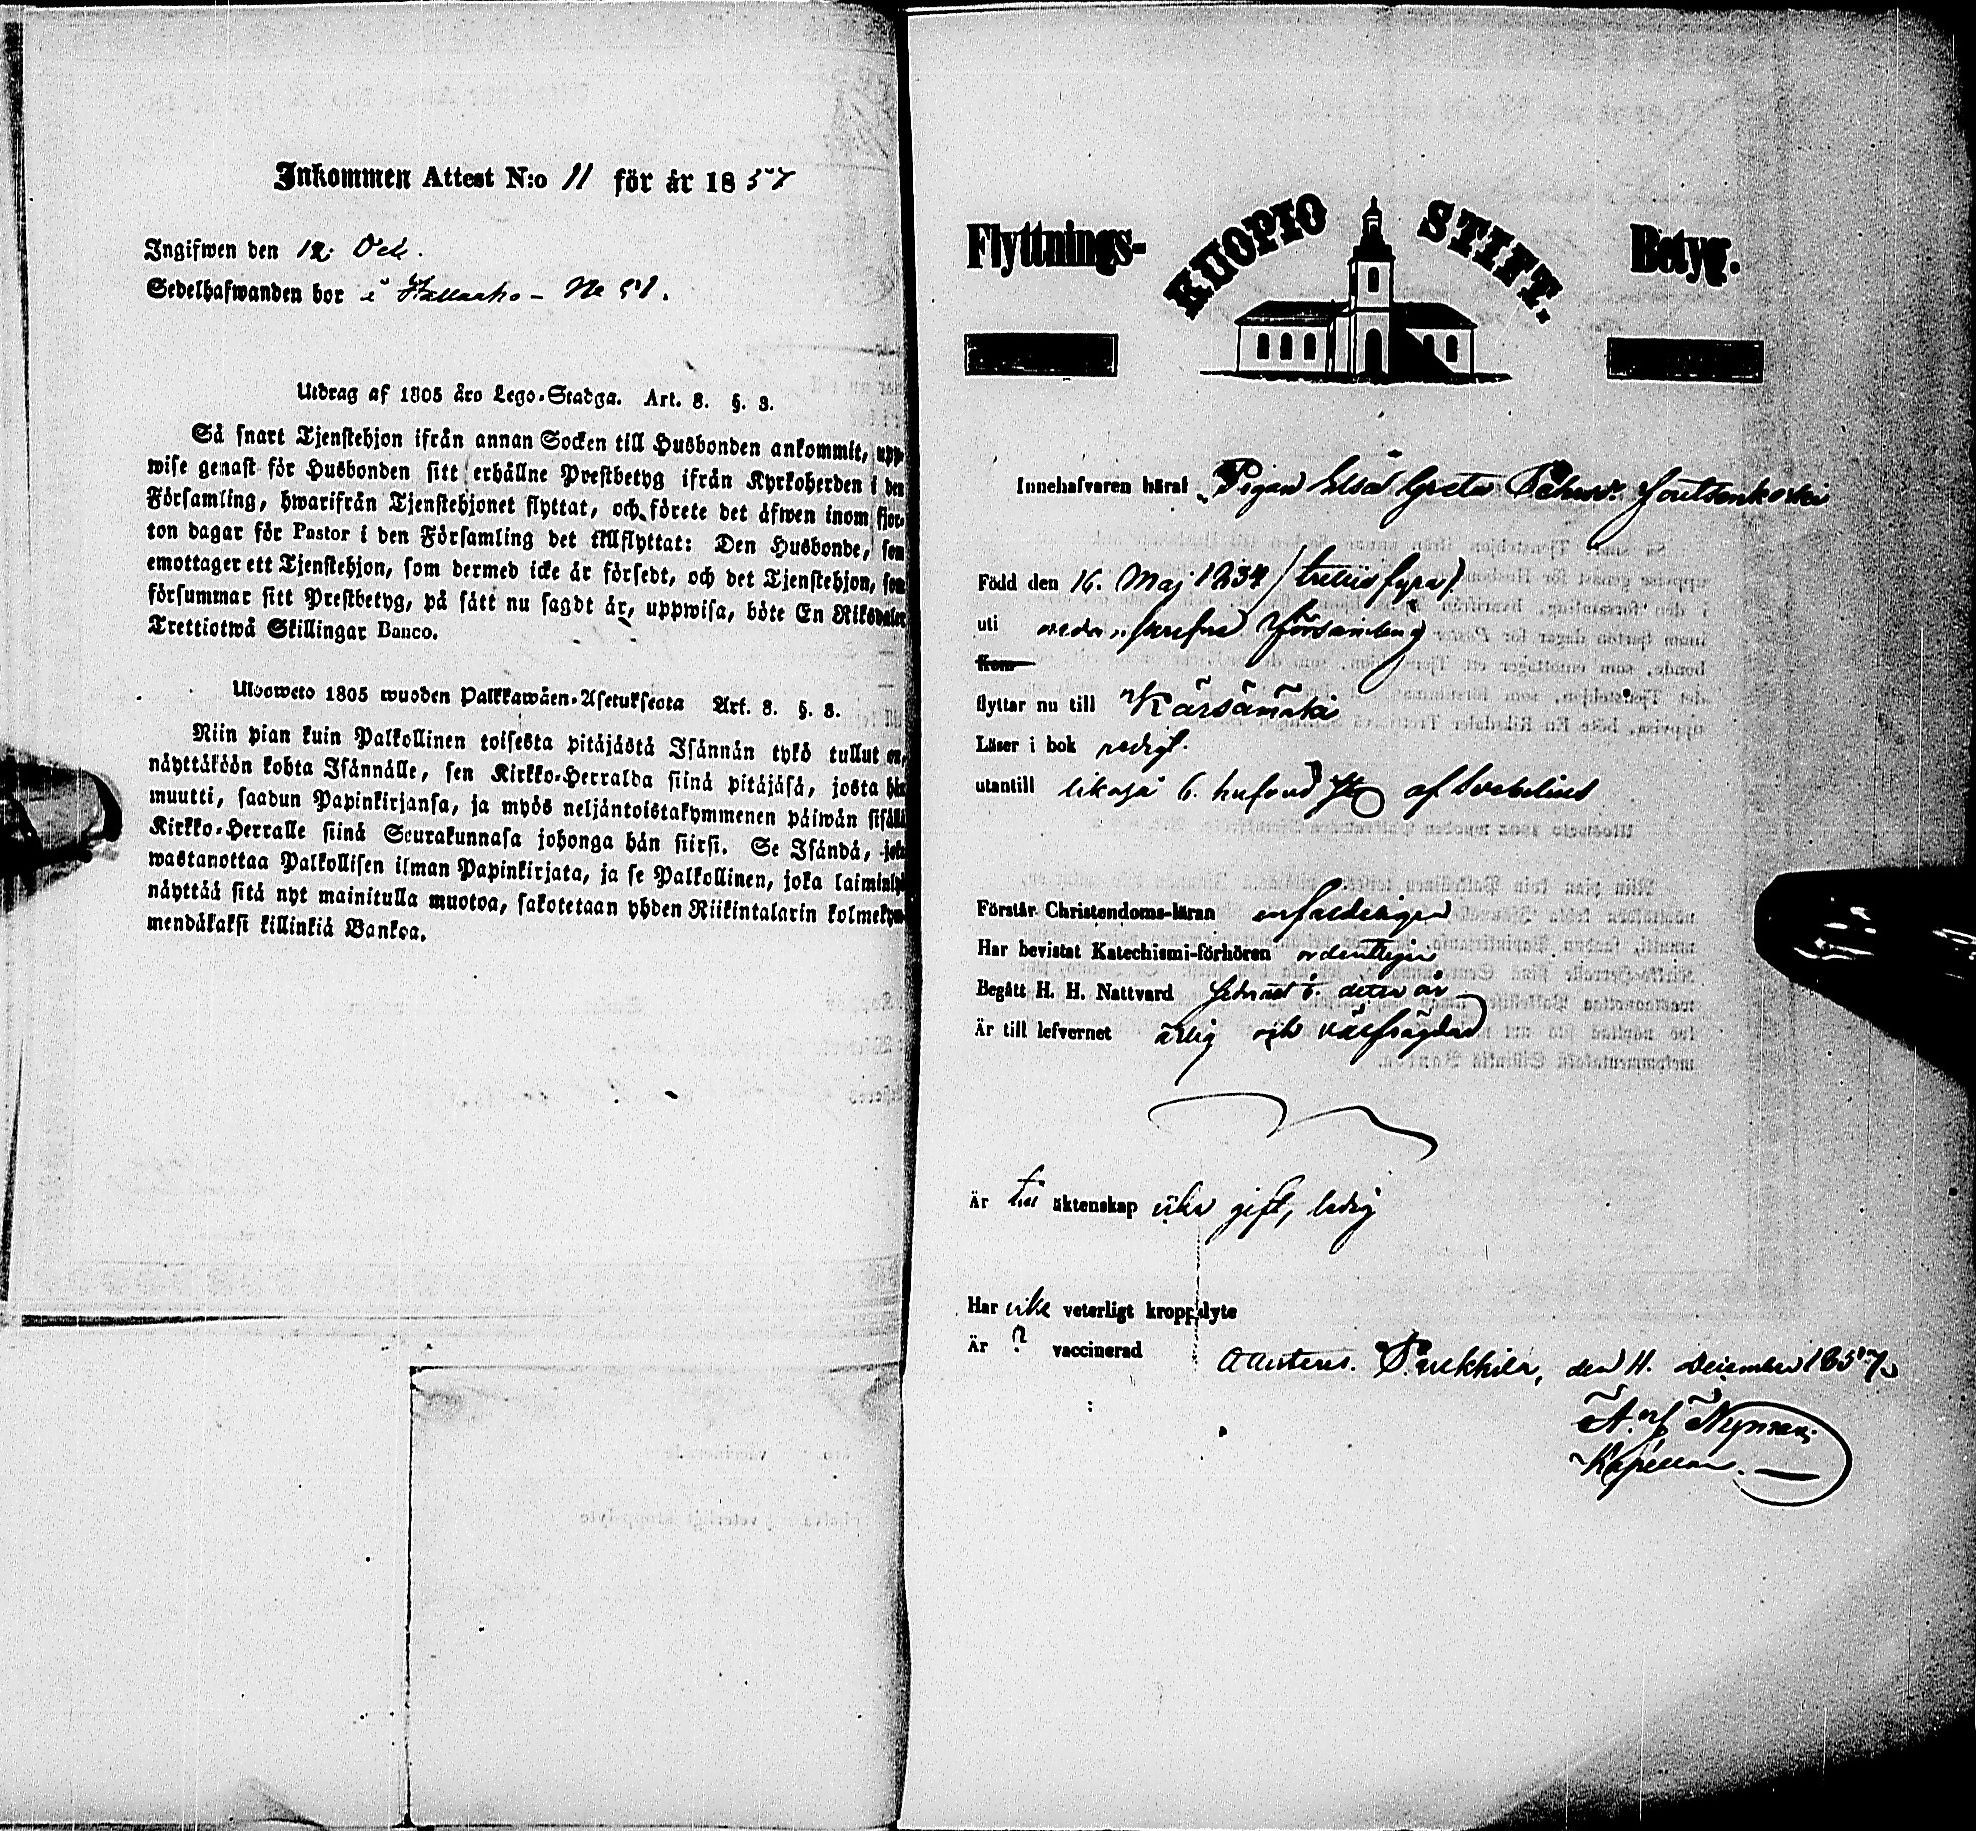 Inkommen Attest N:o 11 för år 1857
Ingifwen den 12.
Sedelhafwanden bor i
Utdrag af 1805 års Lego-Stadga. Art. 8. §. 3.
Så snart Tjenstehjon ifrån annan Socken till Husbonden ankommit, upp-
wise genast för Husbonden sitt erhållne Prestbetyg ifrån Kyrkoherden i den
Församling, hwarifrån Tjenstehjonet flyttat, och förete det äfwen inom fjor-
ton dagar för Pastor i den Församling det tillflyttat: Den Husbonde, som
emottager ett Tjenstehjon, som dermed icke är försedt, och det Tjenstehjon, som
försummar sitt Prestbetyg, på sätt nu sagdt är, uppwisa, böte En Riksdaler
Trettiotwå Skillingar Banco.
Ulosweto 1805 wuoden Palkkawäen-Asetuksesta Art. 8. §. 3.
Niin pian kuin Palkollinen toisesta pitäjästä Isännän tykö tullut on,
näyttäköön kohta Isännälle, sen Kirkko-Herralda siinä pitäjäsä, josta hän
muutti, saadun Papinkirjansa, ja myös neljäntoistakymmenen päiwän sisällä
Kirkko-Herralle siinä Seurakunnasa johonga hän siirsi. Se Isändä, joka
wastanottaa Palkollisen ilman Papinkirjata, ja se Palkollinen, joka laiminlyö
näyttää sitä nyt mainitulla muotoa, sakotetaan yhden Riikintalarin kolmekym-
mendäkaksi killinkiä Bankoa.
Flyttnings- KUOPIO STIFT. Betyg.
Innehafvaren häraf Pigan Elsa Greta Joutsenkoski
Född den 16. Maj 1834 /trettiofyra/.
uti församling
Kom
flyttar nu till Kärsämäki
Läser i bok redigt.
utantill likaså 6. hufvud af Svebelius
Förstår Christendoms-läran enfaldeligen
Har bevistat Katechismi-förhören ordentligen
Begått H. H. Nattvard detta år
Är till lefvernet ärlig och välfrägdad
Är till äktenskap icke gift, ledig
Har icke veterligt kroppslyte
Är ? vaccinerad
attesteras. Pulkkila, den 11. December 1857.
Nyman
Kapellan.